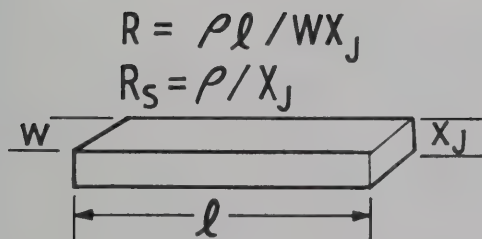 R = ρℓ/WX_J
R_S = ρ/X_J
W
X_J
ℓ